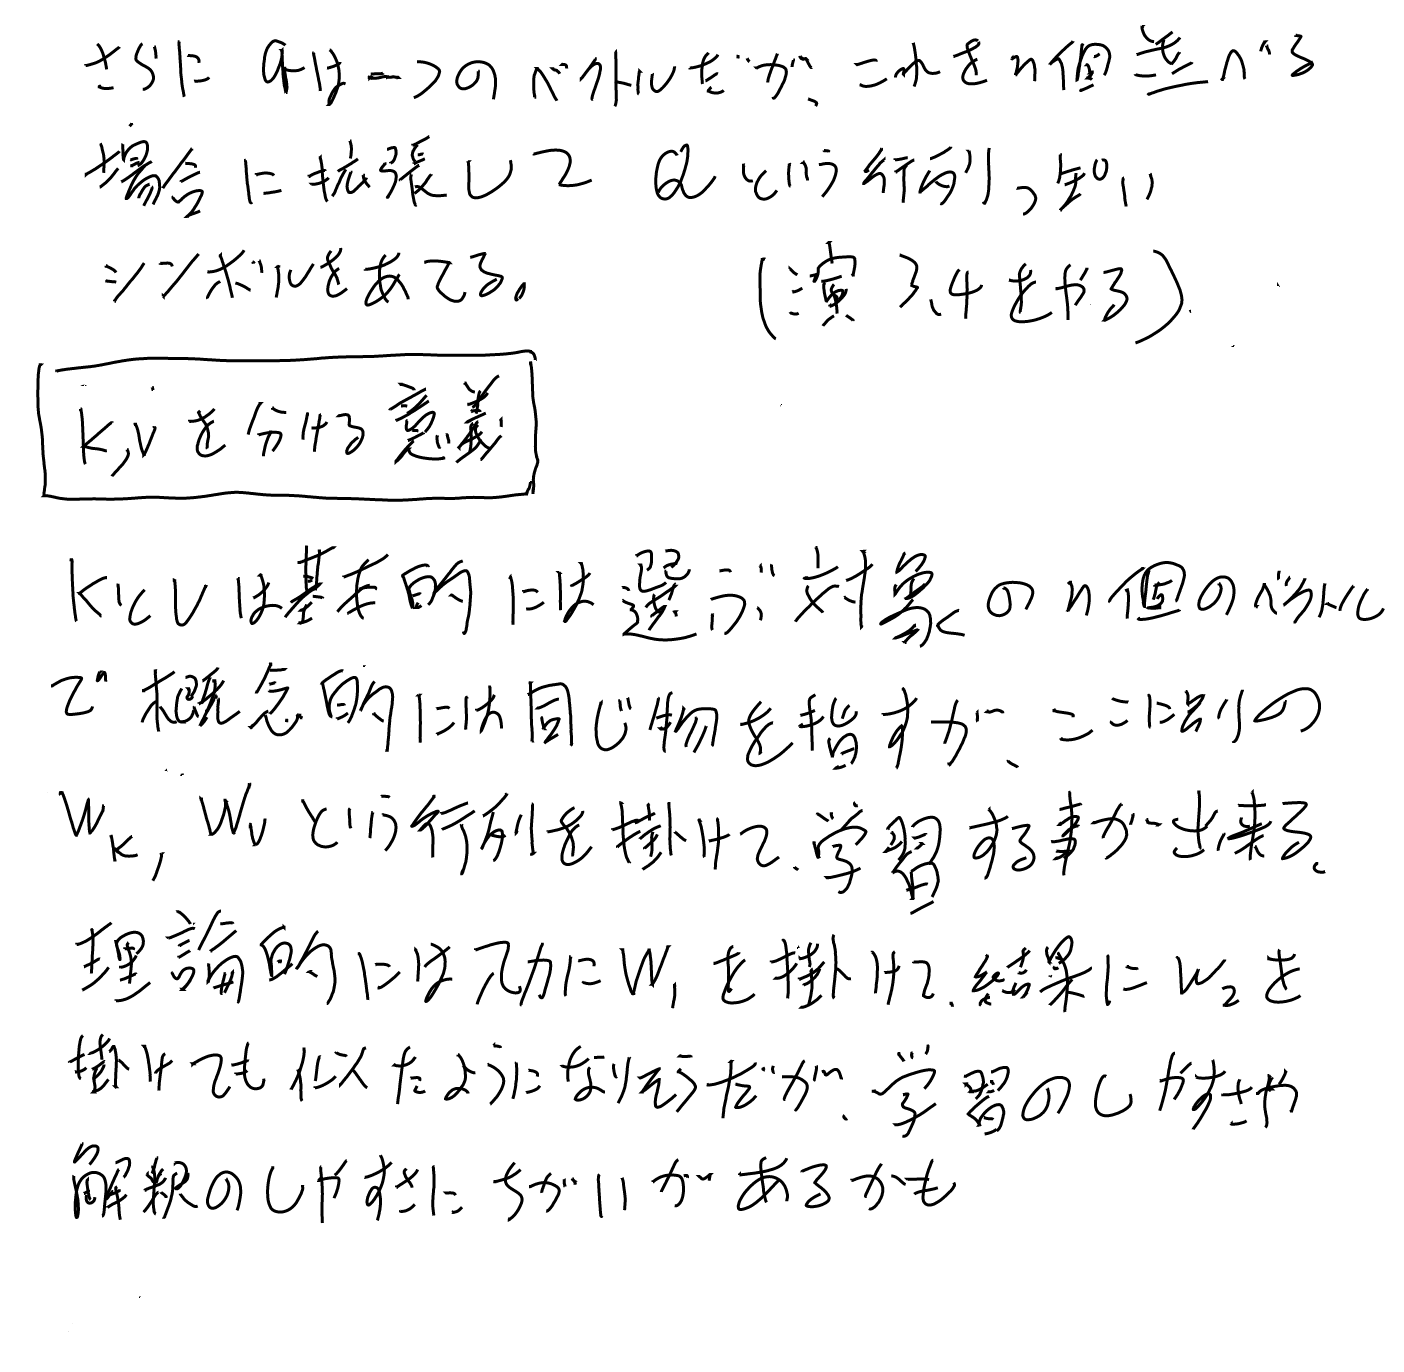 さらに qは一つのベクトルだが、これをn個並べる
場合に拡張して Qという行列っぽい
シンボルをあてる。 (演 3,4をやる)
k,vを分ける意義
KとVは基本的には選ぶ対象のn個のベクトル
で概念的には同じ物を指すが、ここに別の
WK, WVという行列を掛けて、学習する事が出来る。
理論的には入力にW1を掛けて、結果にW2を
掛けても似たようになりそうだが、学習のしやすさや
解釈のしやすさにちがいがあるかも